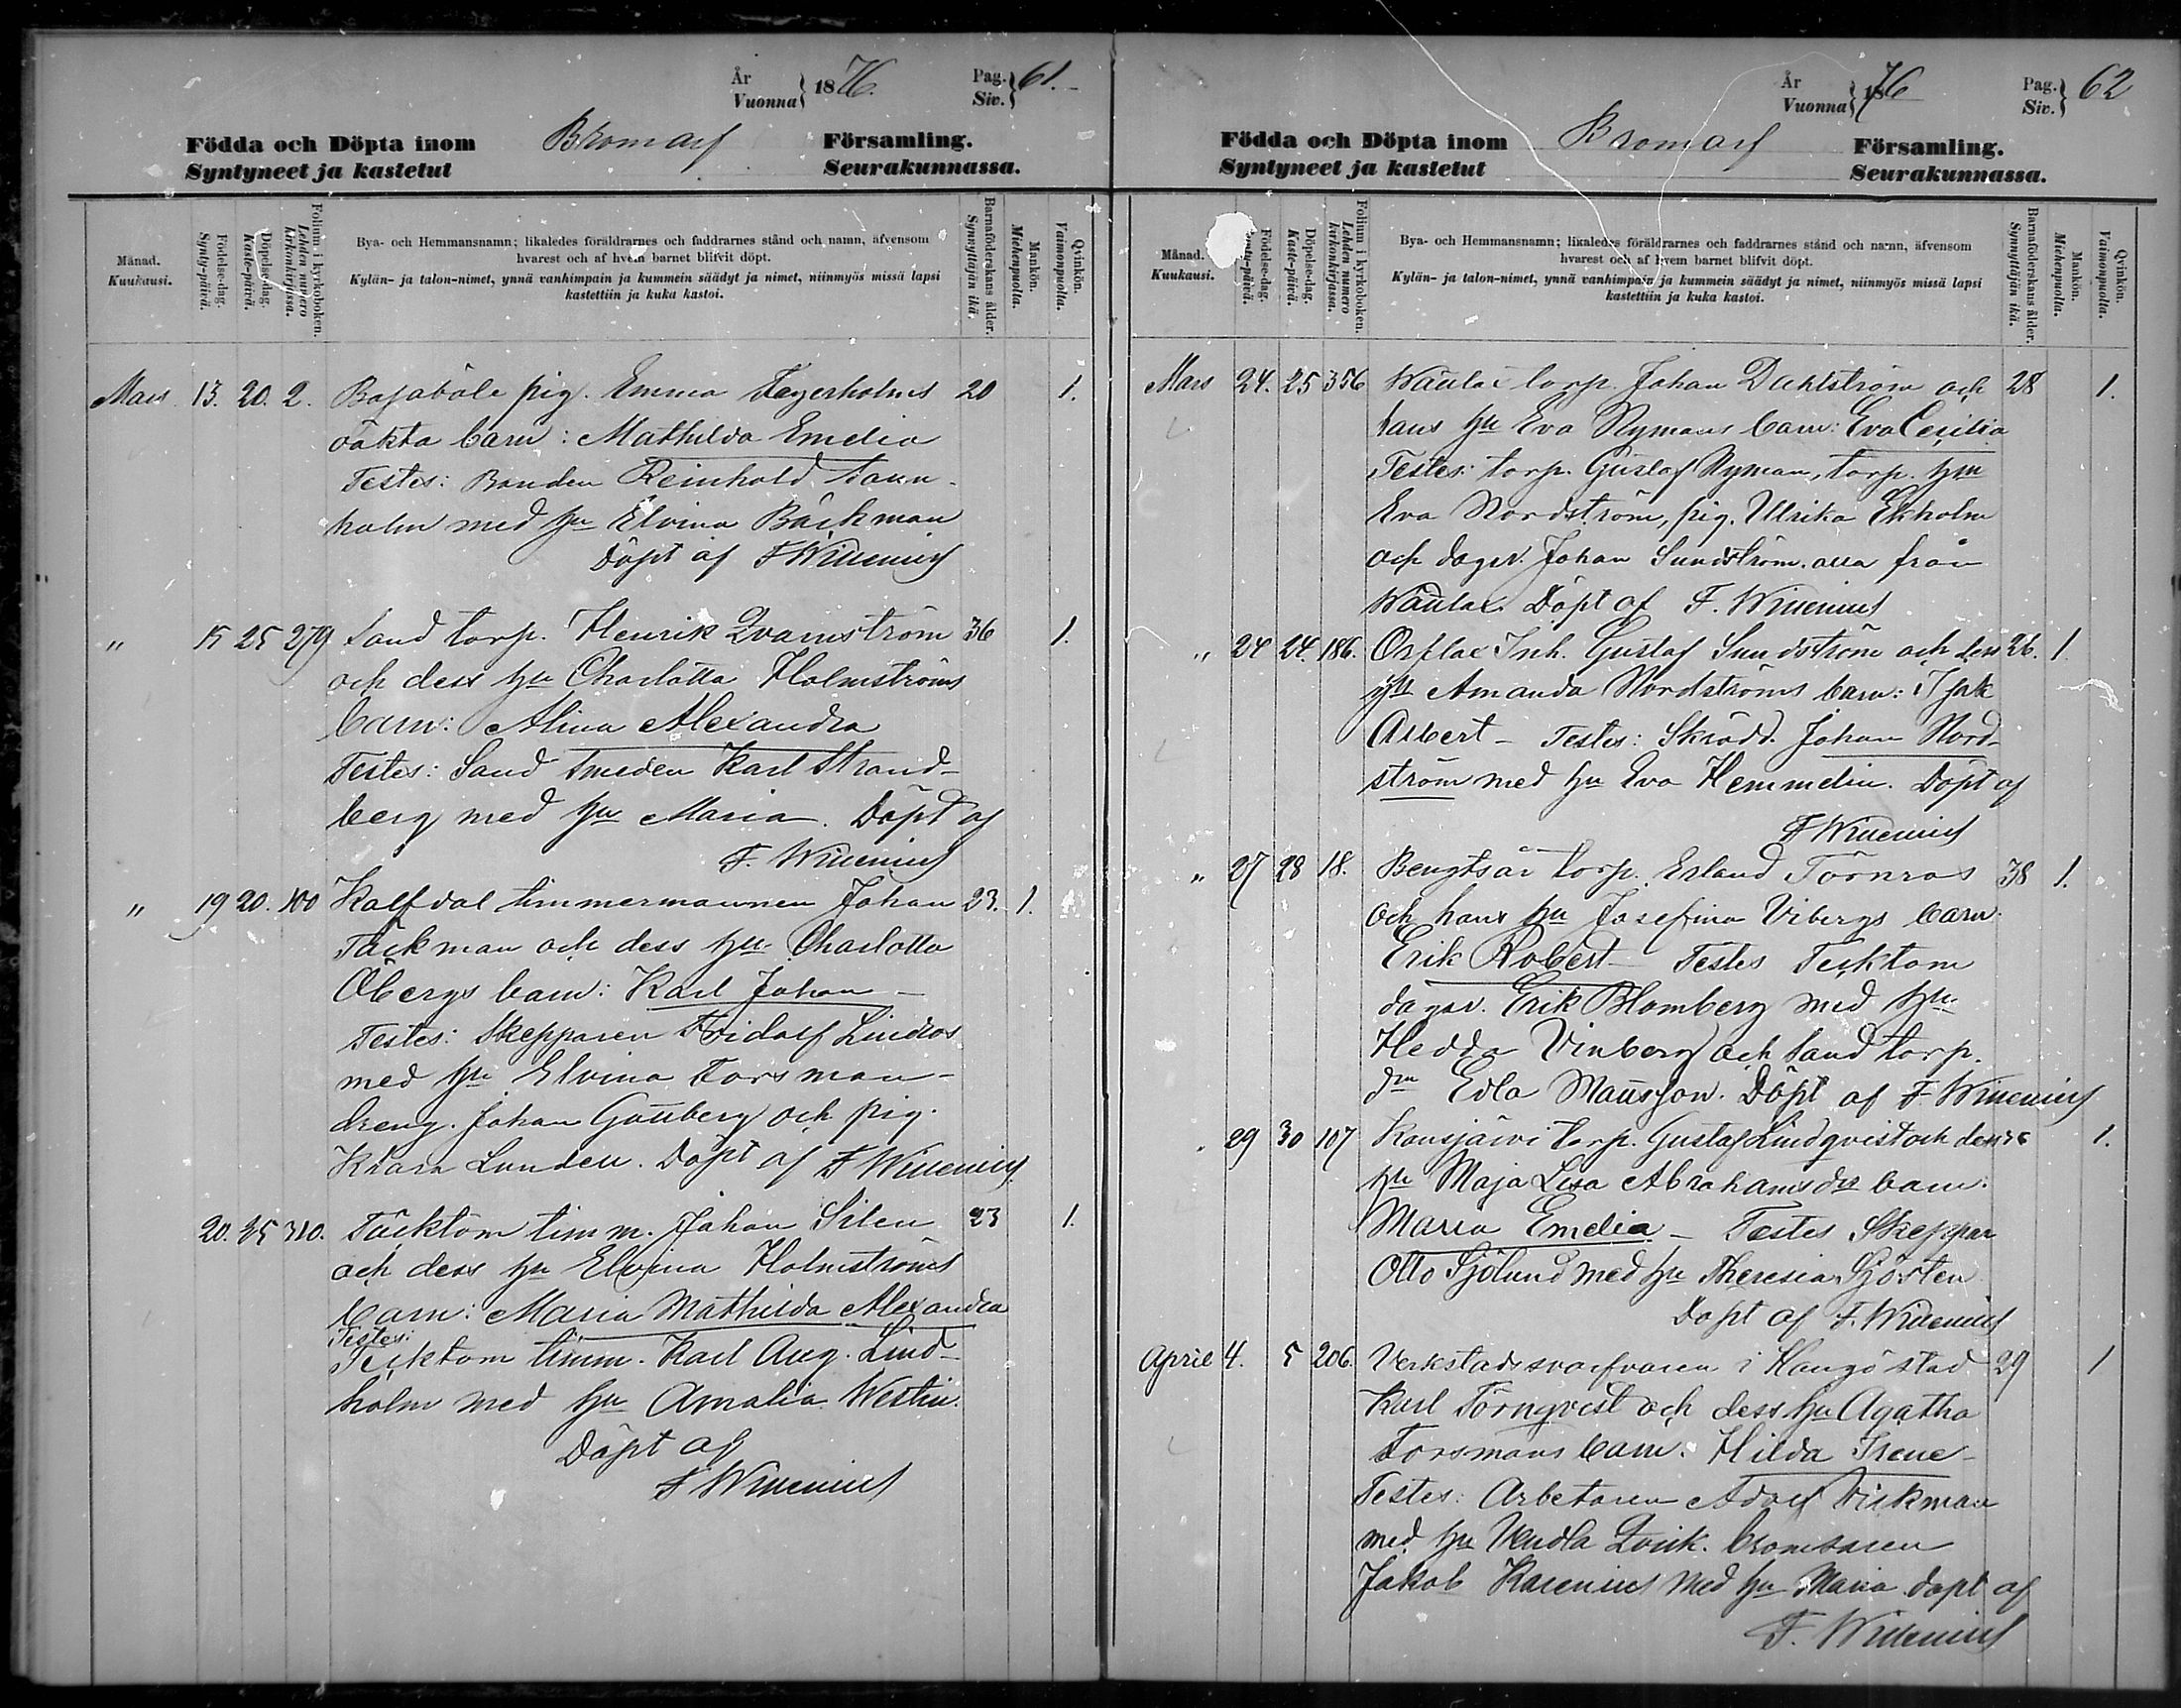 År
Vuonna } 1876. Pag. Siv. } 61.
Födda och Döpta inom Bromarf Församling.
Syntyneet ja kastetut Seurakunnassa.
Månad.
Kuukausi.
Födelse-dag.
Synty-päivä.
Döpelse-dag.
Kaste-päivä.
Folium i kyrkoboken.
Lehden numero kirkonkirjassa.
Bya- och Hemmansnamn; likaledes föräldrarnes och faddrarnes stånd och namn, äfvensom
hvarest och af hvem barnet blifvit döpt.
Kylän- ja talon-nimet, ynnä vanhimpain ja kummein säädyt ja nimet, niinmyös missä lapsi
kastettiin ja kuka kastoi.
Barnaföderskans ålder.
Synnyttäjän ikä.
Mankön.
Miehenpuolta.
Qvinkön.
Vaimonpuolta.
Mars 13. 20. 2. Bajaböle pig. Emma Fagerholms 20 1.
oäkta barn: Mathilda Emelia
Testes: Bonden Reinhold
holm med hu Elvina Bäckman
Döpt af F Winenius
" 15 25 279 Sand torp. Henrik Qvarnström 36 1.
och dess hu Charlotta Holmströms
barn: Alina Alexandra
Testes: Sand Smeden Karl Strand-
berg med hu Maria. Döpt af
F. Winenius
" 19 20. 100 Kalfdal timmermannen Johan 23. 1.
Täckman och dess hu Charlotta
Öbergs barn: Karl Johan -
Testes: Skepparen Fridolf Lindros
med hu Elvina Forsman -
dreng. Johan Gottberg och pig.
Klara Lunden. Döpt af F Winenius
20. 25 310. Täcktom timm. Johan Silen 23 1.
och dess hu Elvina Holmströms
barn: Maria Mathilda Alexandra
Testes:
Täcktom timm. Karl Aug. Lind-
holm med hu Amalia Westin.
Döpt af
F Winenius
År
Vuonna } 1876 Pag. Siv. } 62
Födda och Döpta inom Bromarf Församling.
Syntyneet ja kastetut Seurakunnassa.
Månad.
Kuukausi.
Födelse-dag.
Synty-päivä.
Döpelse-dag.
Kaste-päivä.
Folium i kyrkoboken.
Lehden numero kirkonkirjassa.
Bya- och Hemmansnamn; likaledes föräldrarnes och faddrarnes stånd och namn, äfvensom
hvarest och af hvem barnet blifvit döpt.
Kylän- ja talon-nimet, ynnä vanhimpain ja kummein säädyt ja nimet, niinmyös missä lapsi
kastettiin ja kuka kastoi.
Barnaföderskans ålder.
Synnyttäjän ikä.
Mankön.
Miehenpuolta.
Qvinkön.
Vaimonpuolta.
Mars 24. 25 356 Wättlax torp. Johan Dahlström och 28 1.
hans hu Eva Nymans barn: Eva Cecilia
Testes: torp. Gustaf Nyman, torp. hu
Eva Nordström, pig. Ulrika Ekholm
och dagsv. Johan Sundström. alla från
Wättlax. Döpt af F. Winenius
" 24 24. 186. Orslax Inh. Gustaf Sundström och dess 26. 1.
hu Amanda Nordströms barn: Isak
Albert - Testes: Skrädd. Johan Nord-
ström med hu Eva Hemmelin. Döpt af
F Winenius
" 27 28 18. Bengtsår torp. Erland Törnros 38 1.
och hans hu Josefina Vibergs barn
Erik Robert - Testes Täcktom
dagsv. Erik Blomberg med hu
Hedda Vinberg och Sand torp.
dr Edla Mansson. Döpt af F. Winenius
. 29 30 107 Kansjärvi torp. Gustaf Lindqvist och dess 36 1.
hu Maja Lisa Abrahamsdr barn:
Maria Emelia - Testes Skeppar
Otto Sjölund med hu Theresia Sjösten
Döpt af F. Winenius
April 4. 5 206. Verkstadssvarfvaren i Hangö stad 29 1
Karl Törnqvist och dess hu Agatha
Forsmans barn. Hilda Irene -
Testes: Arbetaren Adolf Vickman
med hu Vendla Qvick.
Jakob Karenius med hu Maria. döpt af
F. Winenius